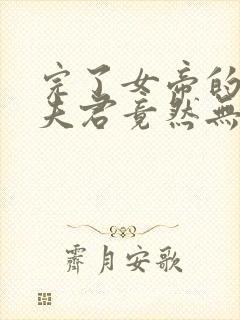 完了女帝的
夫君竟然無
霽月安歌